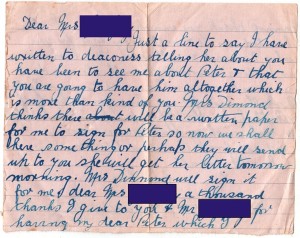 Dear Mrs
Just a line to say I have
written to deaconess telling her about you
have been to see me about Peter & that
you are going to have him altogether which
is more than kind of you. Mrs Dimond
thinks there will be a written paper
for me to sign for Peter so now we shall
there something or perhaps they will send
up to you she will get her letter tomorrow
morning. Mrs Dimond will sign it
for me, dear Mrs a thousand
thanks I give to you & Mr for
having my dear Peter which I